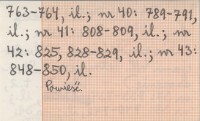 763-764, il.; nr 40: 789-791,
il.; nr 41: 808-809, il.; nr
42: 825, 828-829, il.; nr 43:
848-850, il.
Powieść